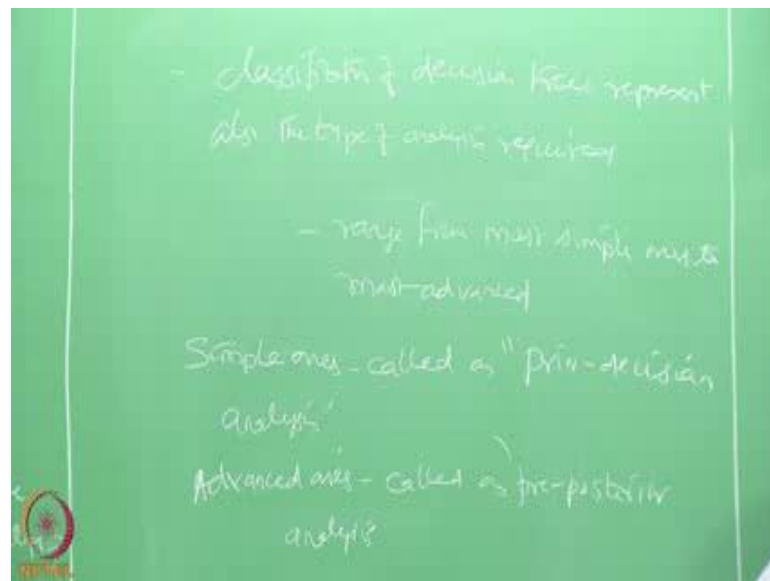 - classification of decision trees represent
also the type of analysis required
- range from most simple ones to
most-advanced
Simple ones - called as "prior-decision
analysis"
Advanced ones - called as "pre-posterior
analysis